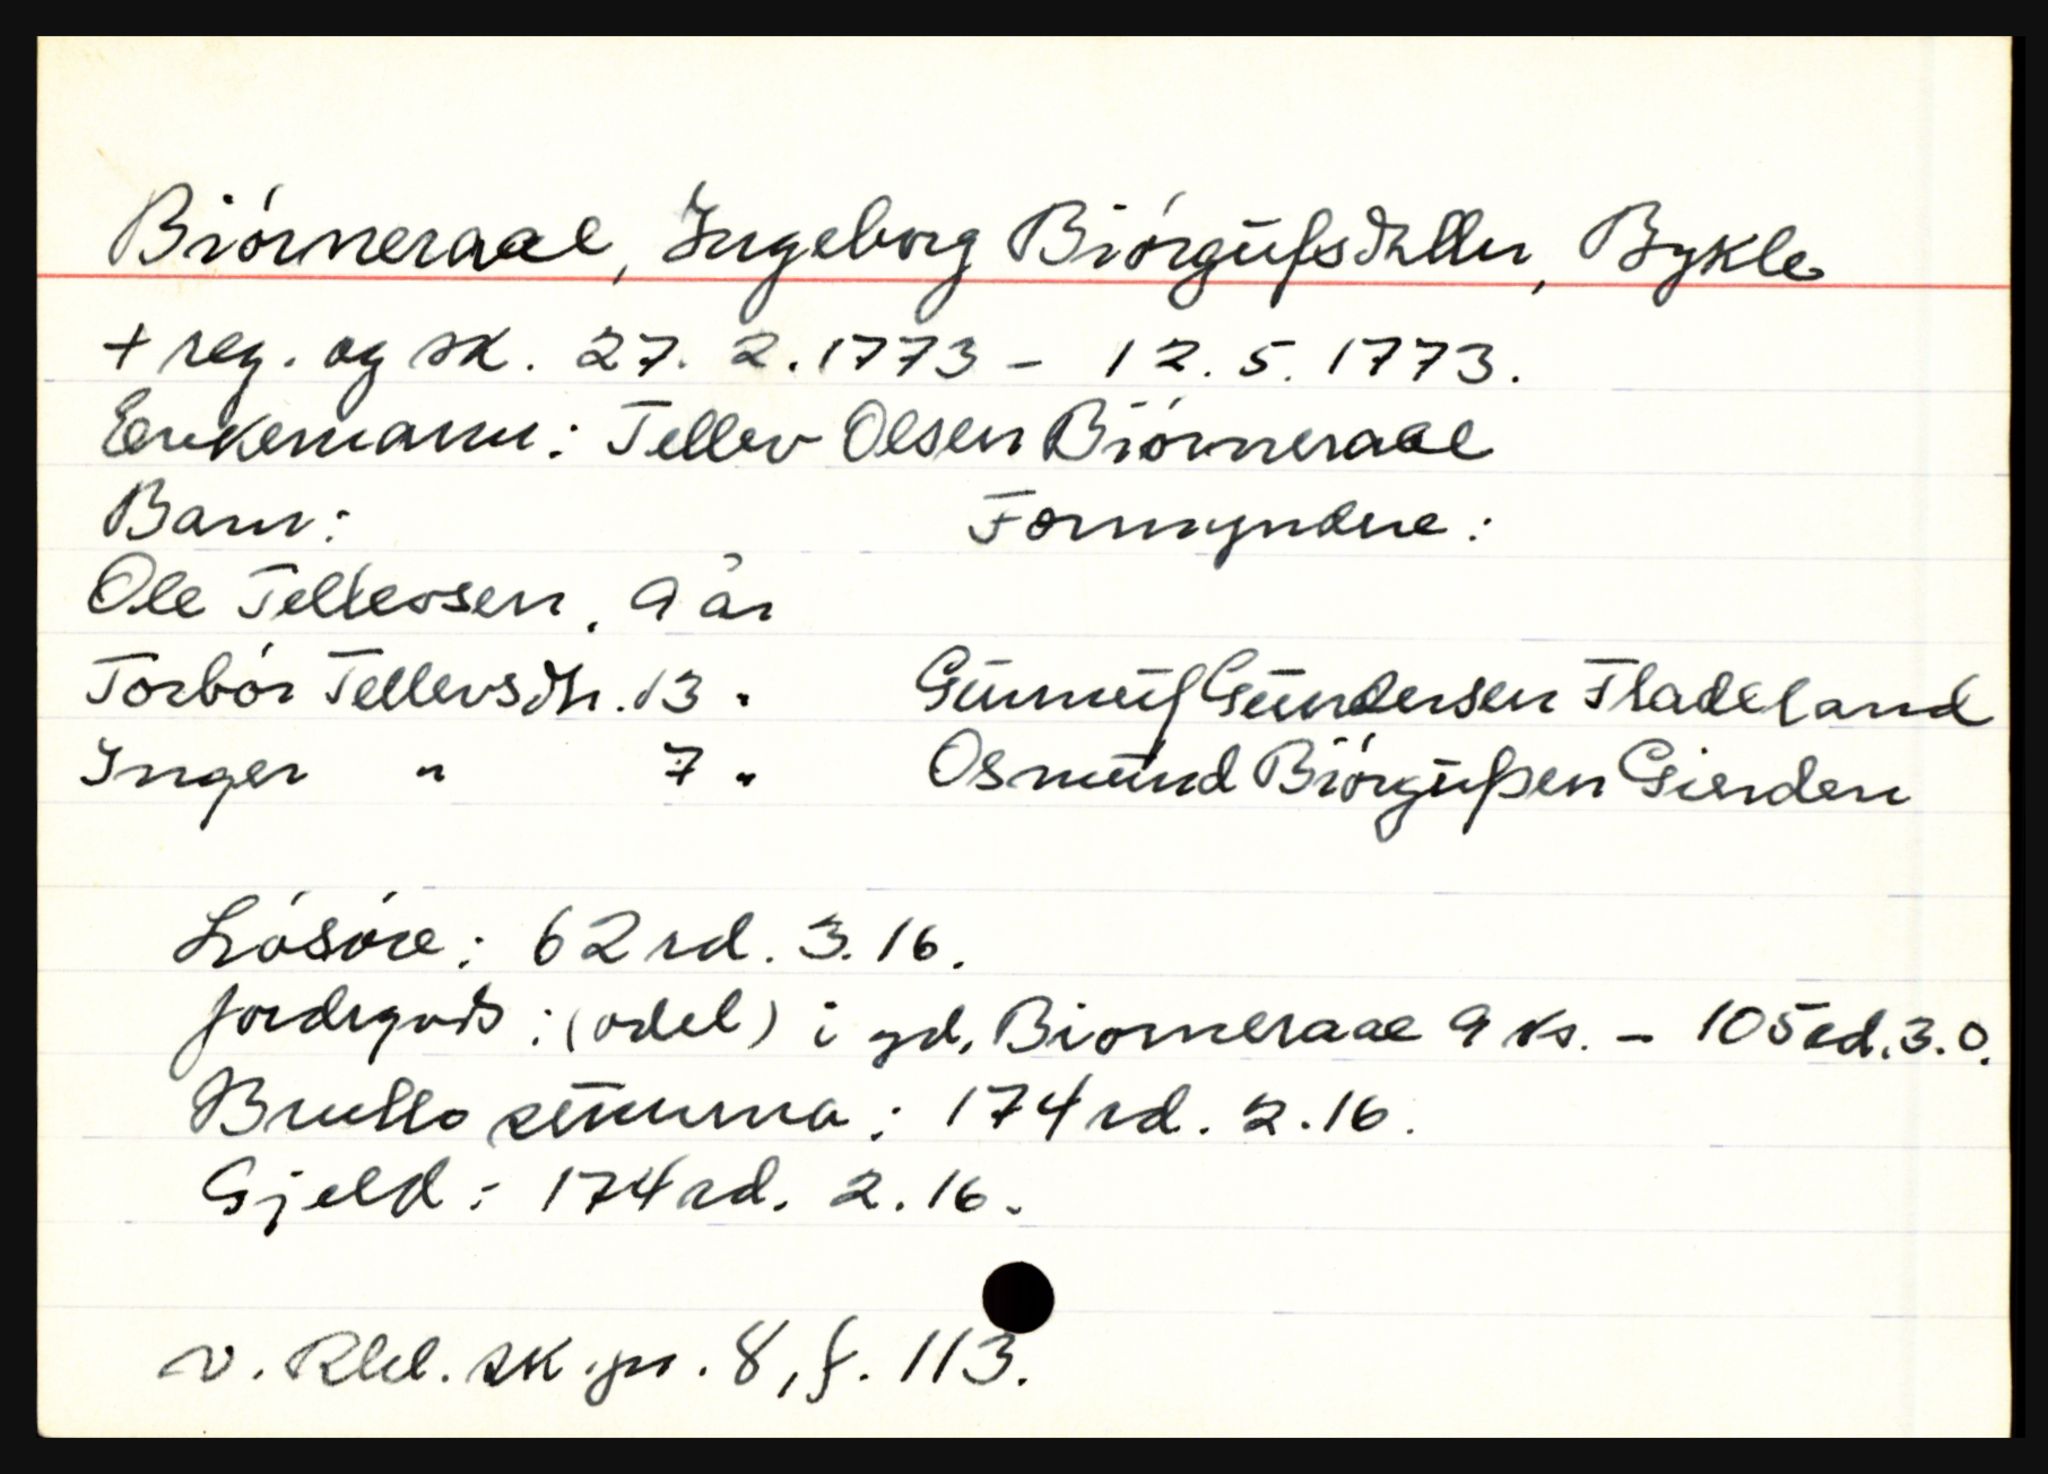 Biórneraae, Ingeborg Biórgufsdatter, Bykle
+ reg. og sk. 27. 2. 1773 - 12. 5. 1773.
Enkemann: Tellev Olsen Biórneraae
Barn: Formyndere:
Ole Tellevsen, 9 år
Torbór Tellevsdtr. 13 "
Gunnuf Gundersen Fladeland
Inger " 7 "
Osmund Biórgufsen Gierden
Lósóre: 62 rd. 3. 16.
Jordegods: (odel) i gd. Biorneraae 9 ks. - 105 rd. 3. 0.
Brutto summa: 174 rd. 2. 16.
Gjeld: 174 rd. 2. 16.
v. Rbd. sk. pr. 8, f. 113.